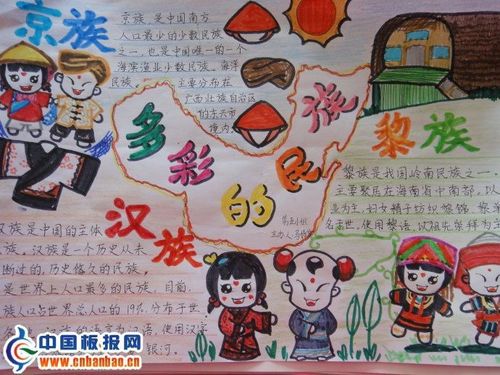 京族
京族 是中国南方
人口最少的少数民族
之一,也是中国唯一的一个
海滨渔业少数民族、海洋
民族。 主要分布在
广西壮族自治区
的东兴市
境内
多彩的民族
第五小组
黎族
黎族是我国岭南民族之一,
主要聚居在海南省中南部,以
业为主,妇女精于纺织
名于世,使用黎语,汉
汉族
汉族是中国的主体
族。汉族是一个历史从未
断过的,历史悠久的民族,
是世界上人口最多的民族。目前
族人口占世界总人口的19%,分布于世
汉族的语言为汉语,使用汉字
银河。
中国板报网
www.cnbanbao.cn